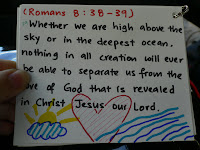 (Romans 8:38-39)
Whether we are high above the
sky or in the deepest ocean,
nothing in all creation will ever
be able to separate us from the
love of God that is revealed
in Christ Jesus our Lord.